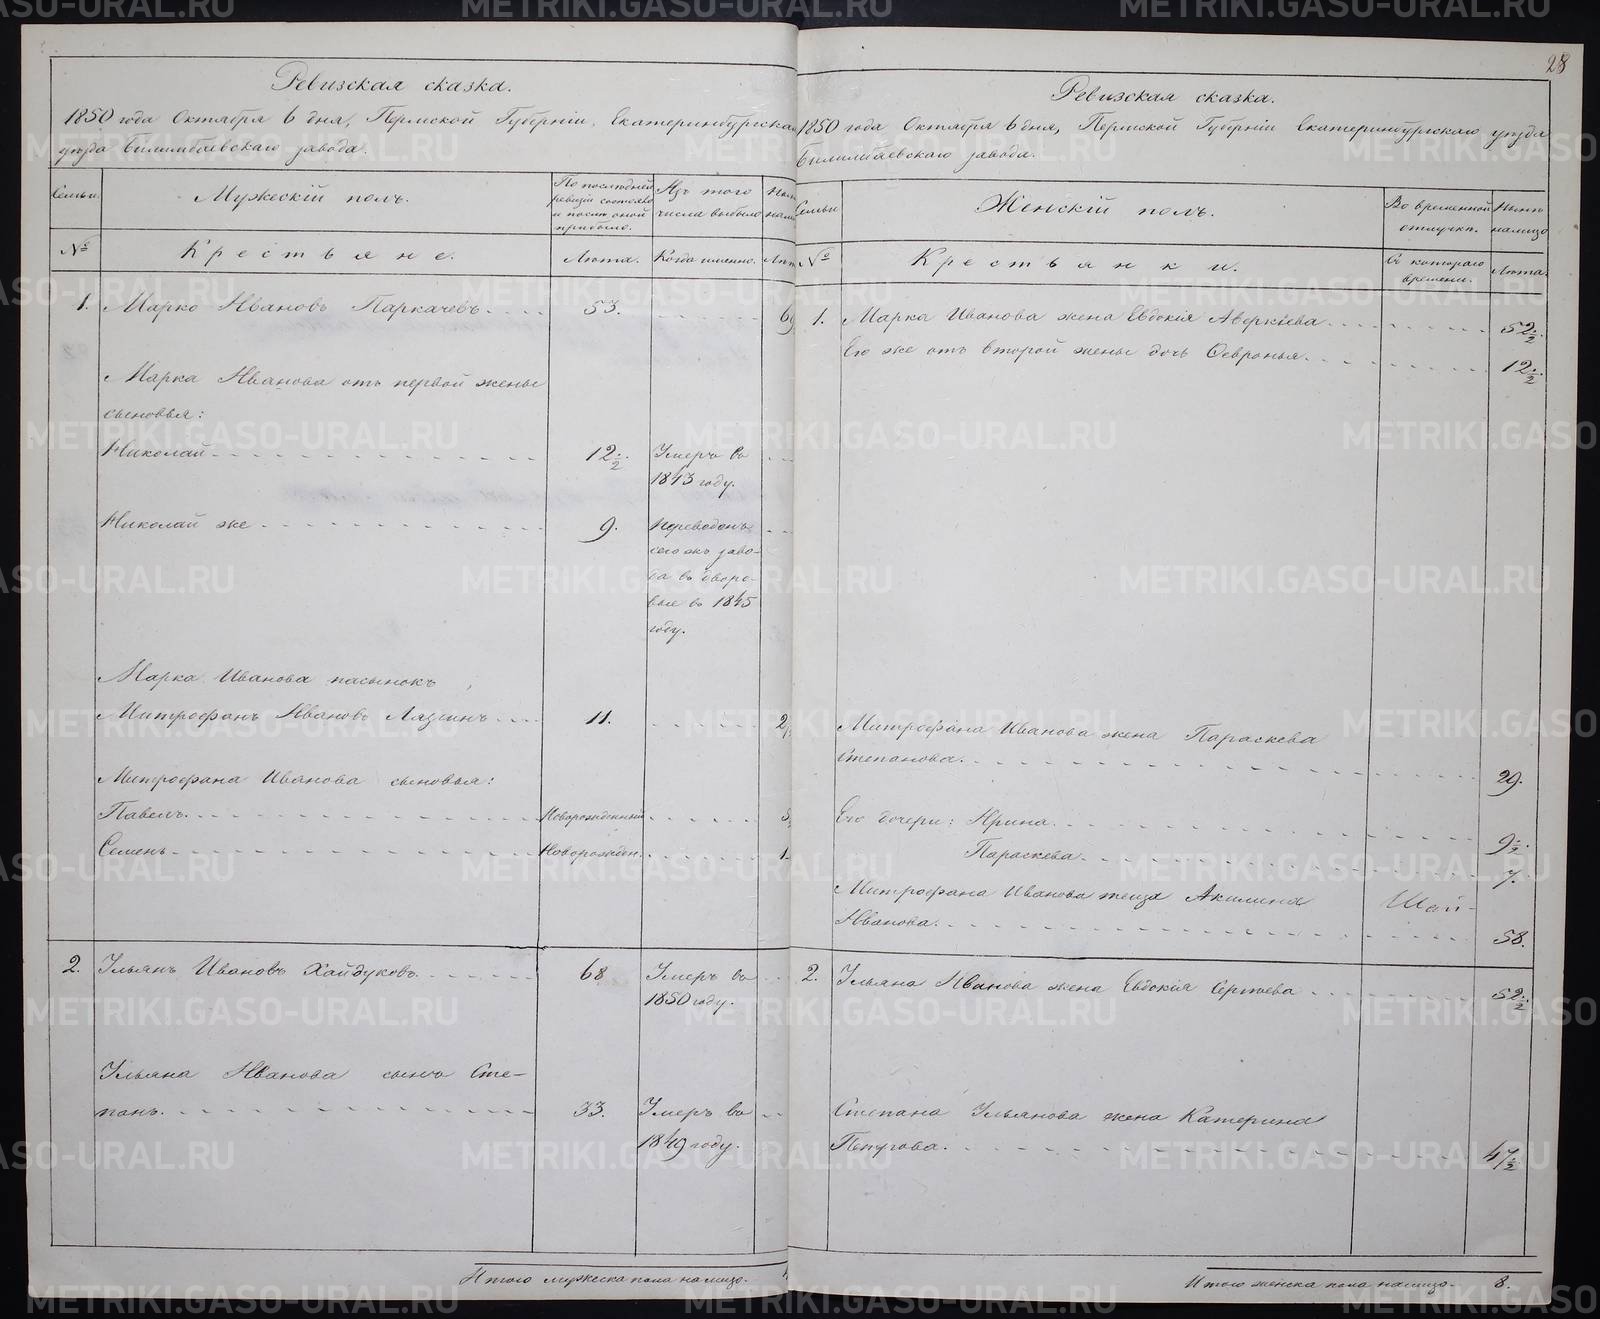 Ревизская сказка.
1850 года Октября 6 дня, Пермской Губерніи, Екатеринбургскаго
уѣзда Билимбаевскаго завода.
Семьи.
Мужескій полъ.
По послѣдней ревизіи состояло и послѣ оной прибыло.
Изъ того числа выбыло
№
Крестьяне.
Лѣта.
Когда именно.
1. Марко Ивановъ Паркачевъ 53.
Марка Иванова отъ первой жены
сыновья:
Николай 12½. Умеръ въ
1843 году.
Николай же 9. Переведенъ
сего жъ заво-
да въ дворо-
вые въ 1845
году.
Марка Иванова пасынокъ
Митрофанъ Ивановъ 11.
Митрофана Иванова сыновья:
Павелъ Новорожденный
Семенъ Новорожден. 1
2. Ульянъ Ивановъ Хайдуковъ 68 Умеръ въ
1850 году.
Ульяна Иванова сынъ Сте-
панъ. 33. Умеръ въ
1849 году.
Итого мужеска пола на лицо.
28
Ревизская сказка.
1850 года Октября 6 дня, Пермской Губерніи Екатеринбургскаго уѣзда
Билимбаевскаго завода.
Семьи
Женскій полъ.
Во временной отлучкѣ.
Нынѣ на лицо
№
Крестьянки.
Съ котораго времени.
Лѣта.
1. Марка Иванова жена Евдокія Аверкіева 52½.
Его же отъ второй жены дочь Февронья. 12½.
Митрофана Иванова жена Параскева
Степанова. 29.
Его дочери: Ирина. 9½.
Параскева. 7.
Митрофана Иванова теща Акилина
Иванова. 58.
2. Ульяна Иванова жена Евдокія Сергѣева 52½
Степана Ульянова жена Катерина
47½
Итого женска пола на лицо. 8.
METRIKI.GASO-URAL.RU